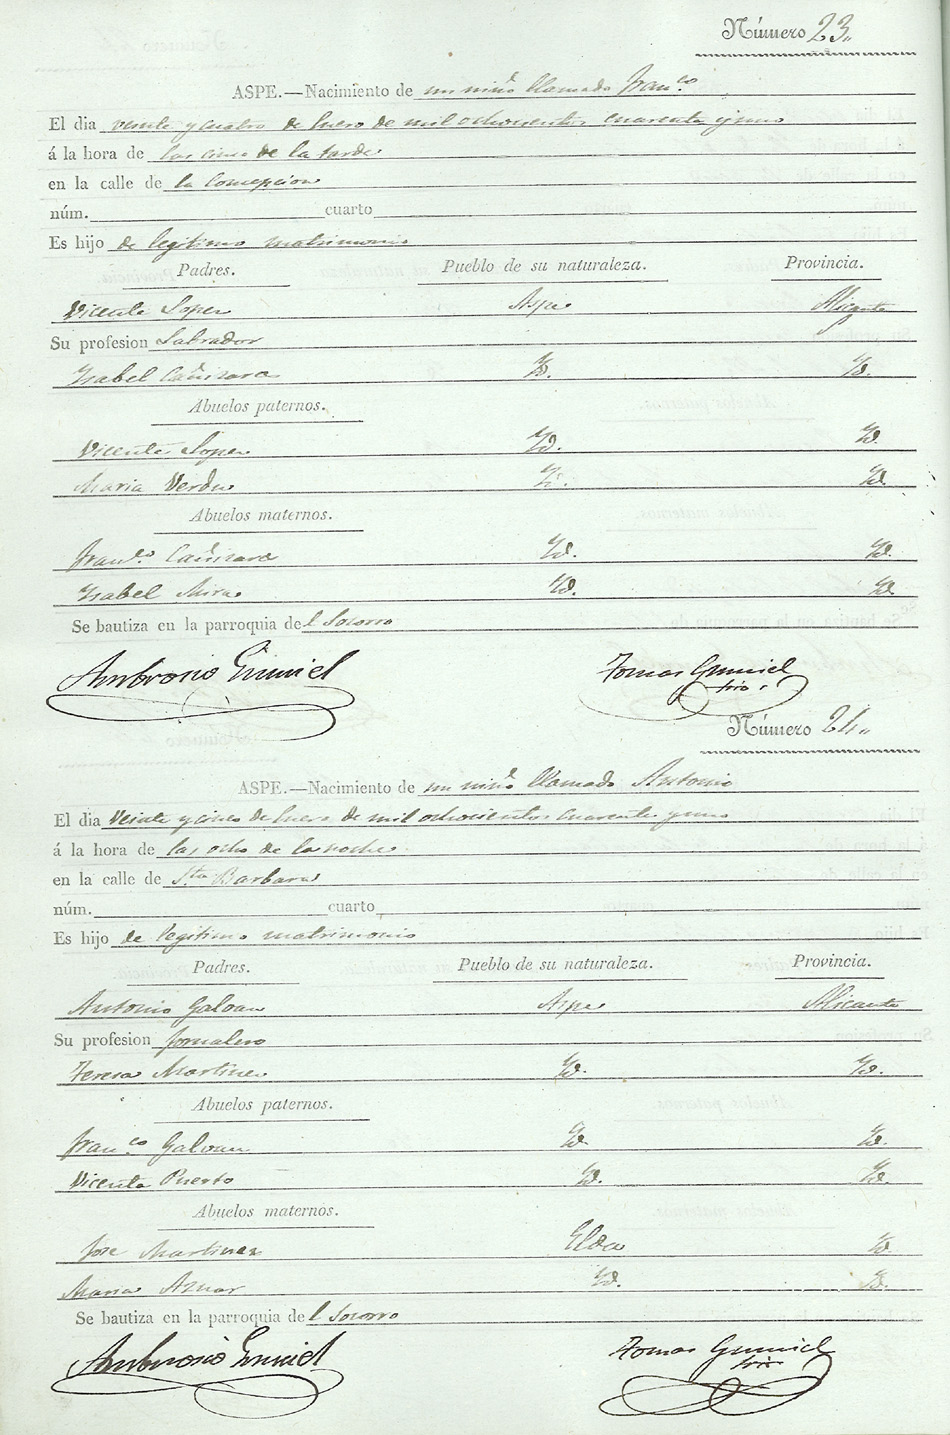 Número 23.
ASPE.—Nacimiento de un niño llamado Fran.co
El dia veinte y cuatro de Enero de mil ochocientos cuarenta y uno
á la hora de las cinco de la tarde
en la calle de la Concepcion
núm. cuarto
Es hijo de legitimo matrimonio
Padres. Pueblo de su naturaleza. Provincia.
Vicente Soper Aspe Alicante
Su profesion Labrador
Ysabel Cañizara Yd. Yd.
Abuelos paternos.
Vicente Soper Yd. Yd.
Maria Verdu Yd. Yd.
Abuelos maternos.
Fran.co Cañizara Yd. Yd.
Ysabel Mira Yd. Yd.
Se bautiza en la parroquia del Socorro
Ambrosio Tomas
Número 24.
ASPE.—Nacimiento de un niño llamado Antonio
El dia Veinte y cinco de Enero de mil ochocientos cuarenta y uno
á la hora de las ocho de la noche
en la calle de Sta Barbara
núm. cuarto
Es hijo de legitimo matrimonio
Padres. Pueblo de su naturaleza. Provincia.
Antonio Galvan Aspe Alicante
Su profesion Jornalero
Teresa Martinez Yd. Yd.
Abuelos paternos.
Fran.co Galvan Yd. Yd.
Vicenta Puerto Yd. Yd.
Abuelos maternos.
Jose Martinez Elda Yd
Maria Aznar Yd. Yd.
Se bautiza en la parroquia del Socorro
Ambrosio Tomas